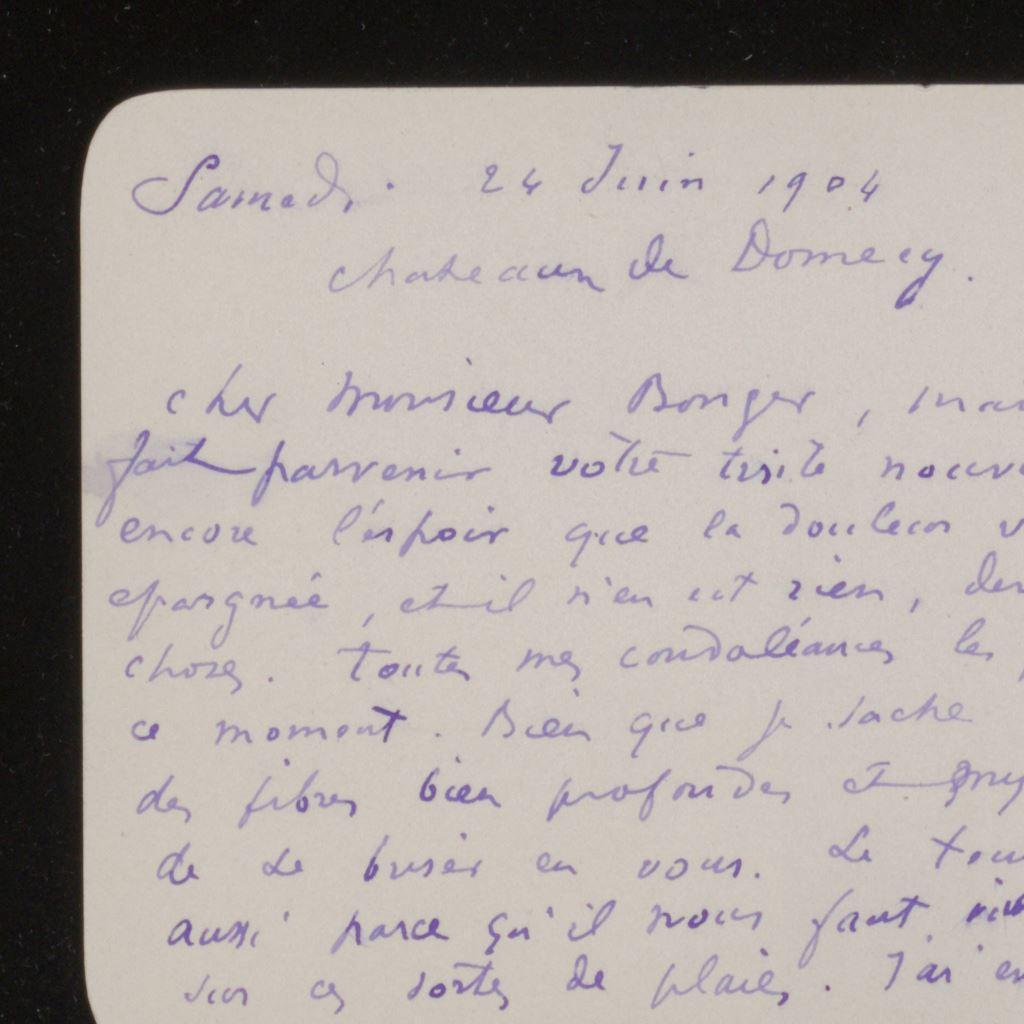 Samedi. 24 Juin 1904
chateau de Domecy.
cher Monsieur Bonger,
fait parvenir vôtre triste
encore l'espoir que la douleur
epargnée, et il n'en est rien,
choses. Toutes mes condoléances les
ce moment. Bien que je sache
des fibres bien profondes et
de se briser en vous. Le
aussi parce qu'il nous faut
sur ces sortes de plaies. J'ai